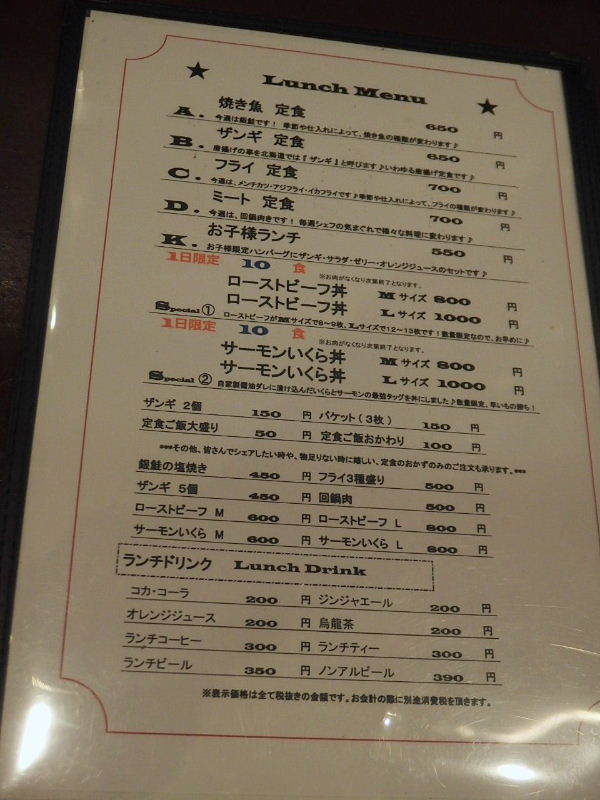 ★ Lunch Menu ★
A. 焼き魚 定食 650 円
今週は銀鮭です！ 季節や仕入れによって、焼き魚の種類が変わります♪
B. ザンギ 定食 650 円
唐揚げの事を北海道では『ザンギ』と呼びます♪いわゆる唐揚げ定食です♪
C. フライ 定食 700 円
今週は、メンチカツ・アジフライ・イカフライです♪季節や仕入れによって、フライの種類が変わります♪
D. ミート 定食 700 円
今週は、回鍋肉です！ 毎週シェフの気まぐれで様々な料理に変わります♪
K. お子様ランチ 550 円
お子様限定ハンバーグにザンギ・サラダ・ゼリー・オレンジジュースのセットです♪
1日限定 10 食 ※お肉がなくなり次第終了となります。
ローストビーフ丼 M サイズ 800 円
ローストビーフ丼 L サイズ 1000 円
Special ① ローストビーフがMサイズで8～9枚、Lサイズで12～13枚です！数量限定なので、お早めに♪
1日限定 10 食 ※お肉がなくなり次第終了となります。
サーモンいくら丼 M サイズ 800 円
サーモンいくら丼 L サイズ 1000 円
Special ② 自家製醤油ダレに漬け込んだいくらとサーモンの最強タッグを丼にしました♪数量限定、早いもの勝ち！
ザンギ 2個 150 円 バケット（3枚） 150 円
定食ご飯大盛り 50 円 定食ご飯おかわり 100 円
***その他、皆さんでシェアしたい時や、物足りない時に嬉しい、定食のおかずのみのご注文も承ります。***
銀鮭の塩焼き 450 円 フライ3種盛り 500 円
ザンギ 5個 450 円 回鍋肉 500 円
ローストビーフ M 600 円 ローストビーフ L 800 円
サーモンいくら M 600 円 サーモンいくら L 800 円
ランチドリンク Lunch Drink
コカ・コーラ 200 円 ジンジャエール 200 円
オレンジジュース 200 円 烏龍茶 200 円
ランチコーヒー 300 円 ランチティー 300 円
ランチビール 350 円 ノンアルビール 390 円
※表示価格は全て税抜きの金額です。お会計の際に別途消費税を頂きます。